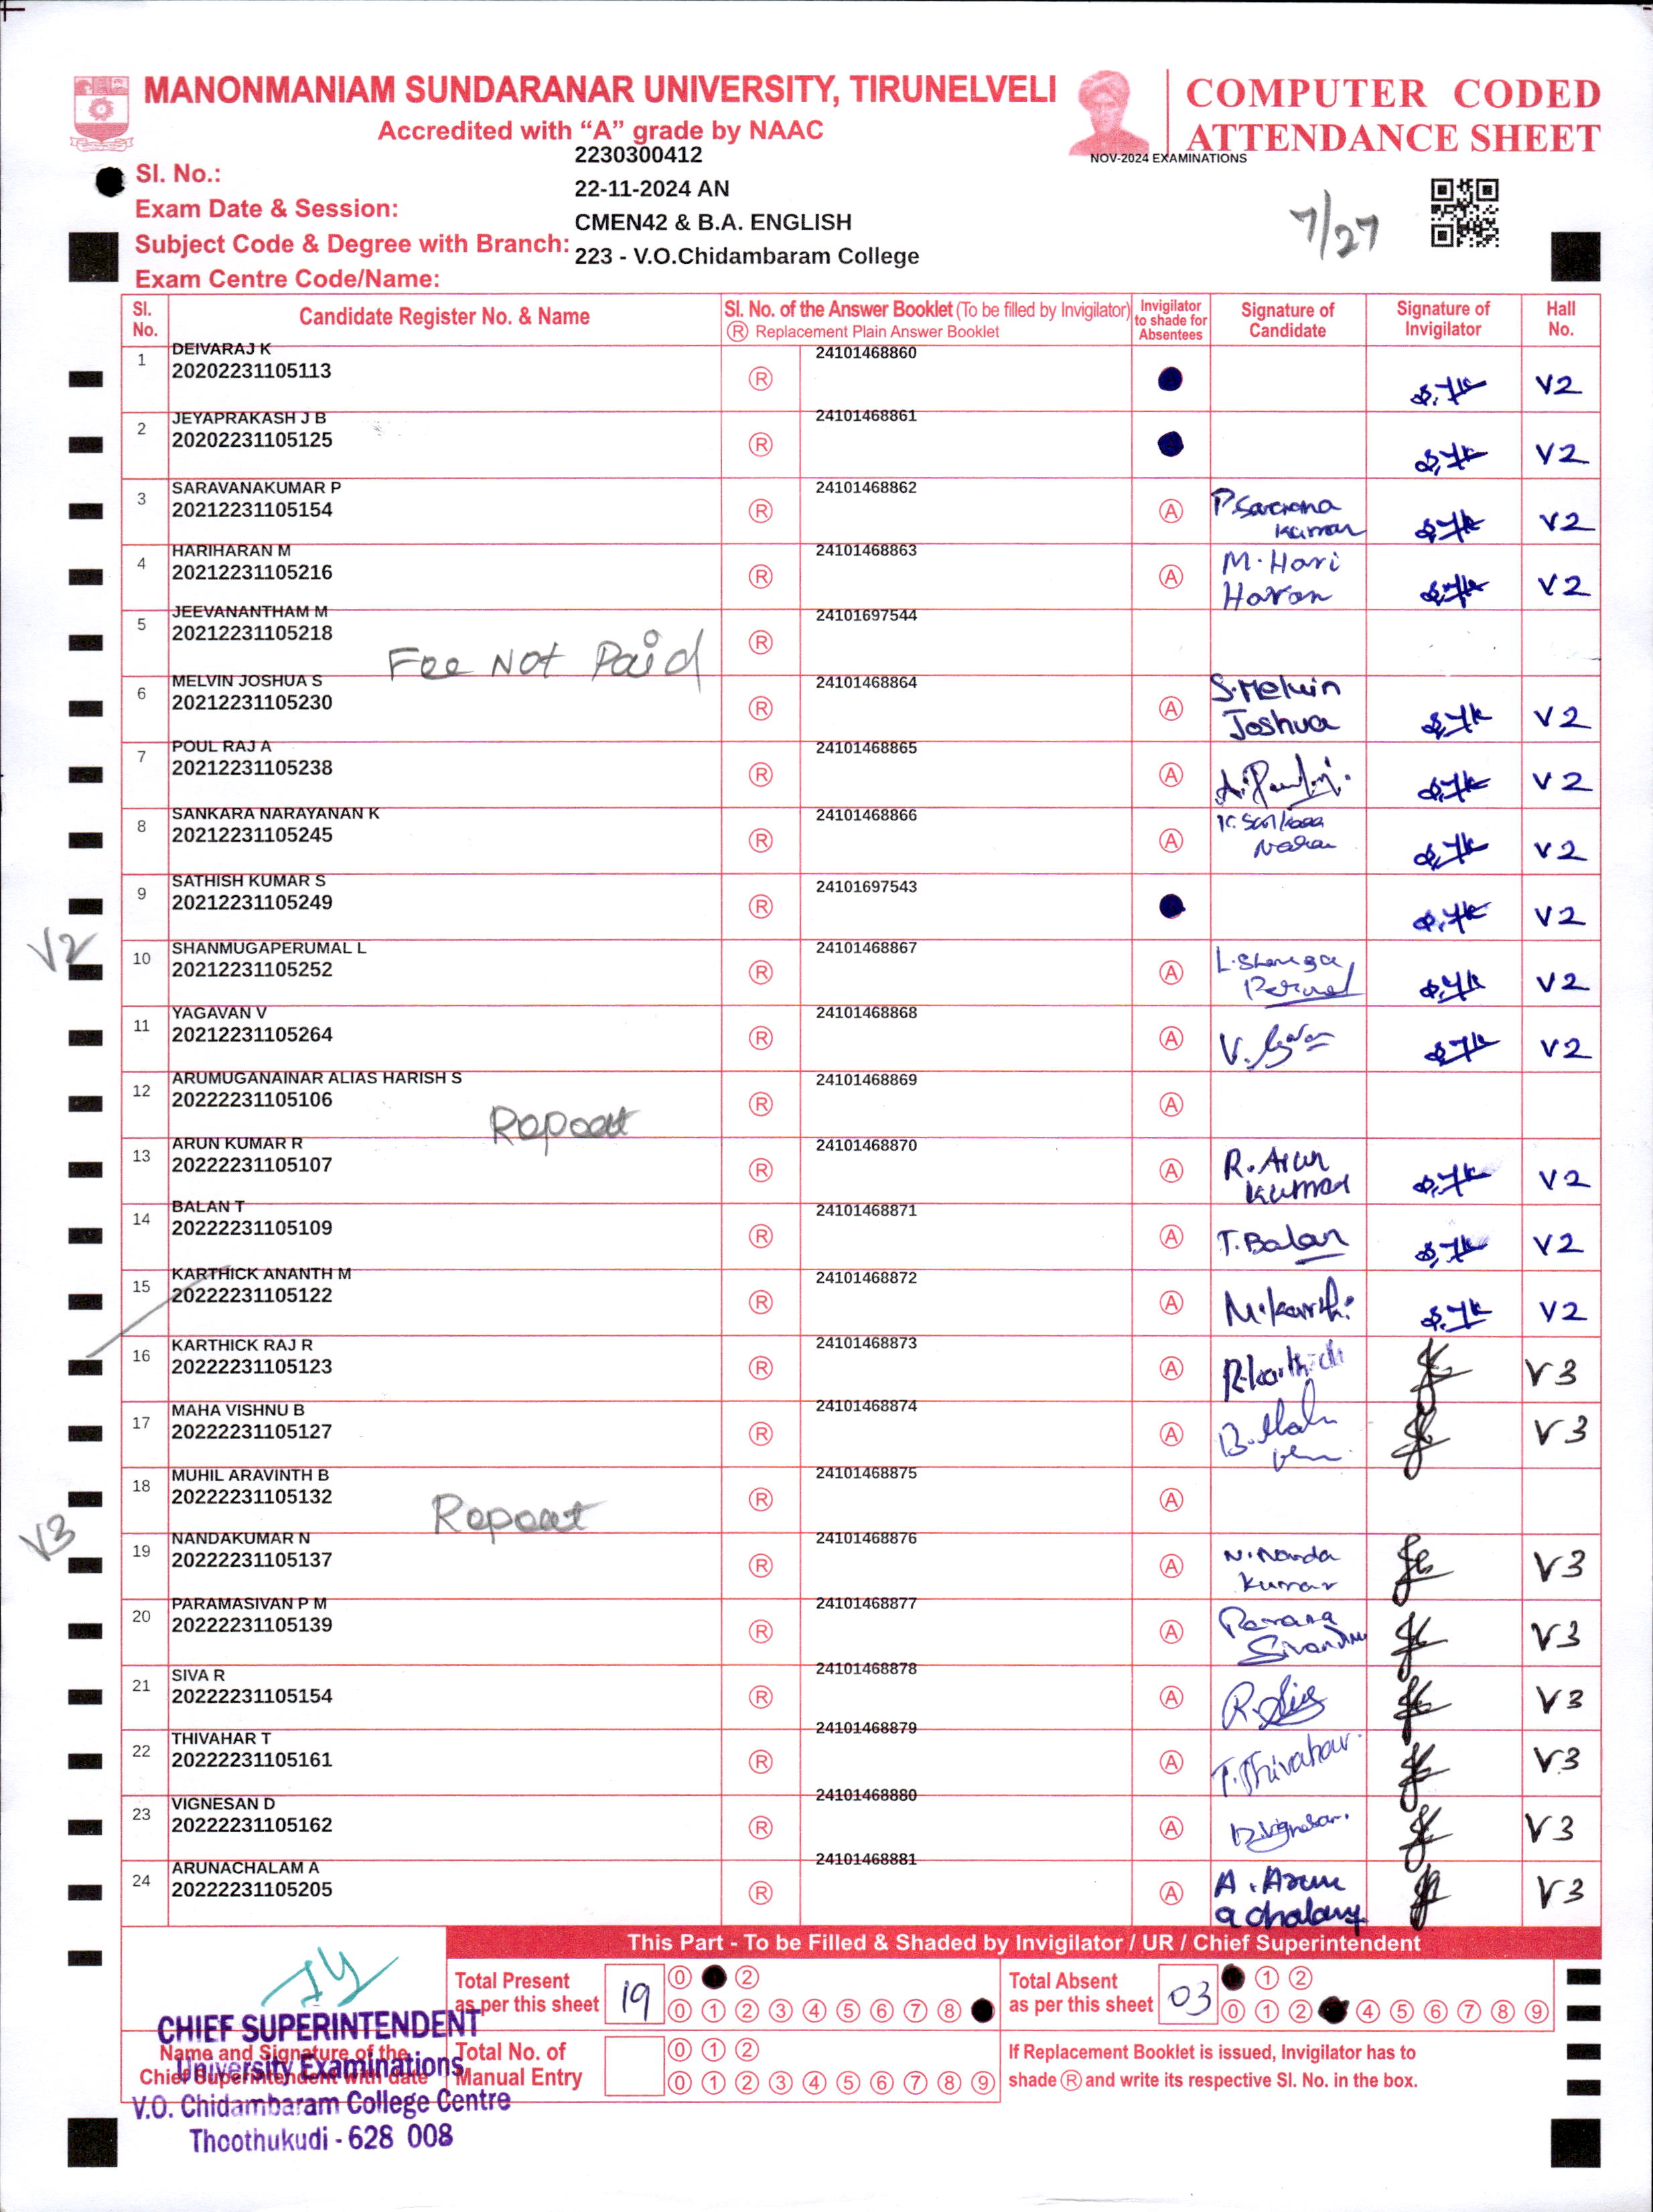 MANONMANIAM SUNDARANAR UNIVERSITY, TIRUNELVELI
Accredited with “A” grade by NAAC
COMPUTER CODED
ATTENDANCE SHEET
NOV-2024 EXAMINATIONS
Sl. No.: 2230300412
Exam Date & Session: 22-11-2024 AN
Subject Code & Degree with Branch: CMEN42 & B.A. ENGLISH
Exam Centre Code/Name: 223 - V.O.Chidambaram College
7/27
Sl. No. Candidate Register No. & Name Sl. No. of the Answer Booklet (To be filled by Invigilator) Invigilator to shade for Absentees Signature of Candidate Signature of Invigilator Hall No.
Ⓡ Replacement Plain Answer Booklet
1 DEIVARAJ K 24101468860
20202231105113 Ⓡ V2
2 JEYAPRAKASH J B 24101468861
20202231105125 Ⓡ V2
3 SARAVANAKUMAR P 24101468862 P.Saravana
20212231105154 Ⓡ Ⓐ Kumar V2
4 HARIHARAN M 24101468863 M.Hari
20212231105216 Ⓡ Ⓐ Haran V2
5 JEEVANANTHAM M 24101697544
20212231105218 Fee Not Paid Ⓡ
6 MELVIN JOSHUA S 24101468864 S.Melvin
20212231105230 Ⓡ Ⓐ Joshua V2
7 POUL RAJ A 24101468865
20212231105238 Ⓡ Ⓐ V2
8 SANKARA NARAYANAN K 24101468866
20212231105245 Ⓡ Ⓐ V2
9 SATHISH KUMAR S 24101697543
20212231105249 Ⓡ V2
V2
10 SHANMUGAPERUMAL L 24101468867
20212231105252 Ⓡ Ⓐ V2
11 YAGAVAN V 24101468868
20212231105264 Ⓡ Ⓐ V2
12 ARUMUGANAINAR ALIAS HARISH S 24101468869
20222231105106 Repeat Ⓡ Ⓐ
13 ARUN KUMAR R 24101468870 R.Arun
20222231105107 Ⓡ Ⓐ Kumar V2
14 BALAN T 24101468871
20222231105109 Ⓡ Ⓐ T.Balan V2
15 KARTHICK ANANTH M 24101468872
20222231105122 Ⓡ Ⓐ V2
16 KARTHICK RAJ R 24101468873
20222231105123 Ⓡ Ⓐ R.karthick V3
17 MAHA VISHNU B 24101468874
20222231105127 Ⓡ Ⓐ V3
18 MUHIL ARAVINTH B 24101468875
20222231105132 Repeat Ⓡ Ⓐ
V3
19 NANDAKUMAR N 24101468876 N.Nanda
20222231105137 Ⓡ Ⓐ Kumar V3
20 PARAMASIVAN P M 24101468877
20222231105139 Ⓡ Ⓐ V3
21 SIVA R 24101468878
20222231105154 Ⓡ Ⓐ R.Siva V3
22 THIVAHAR T 24101468879
20222231105161 Ⓡ Ⓐ T.Thivahar V3
23 VIGNESAN D 24101468880
20222231105162 Ⓡ Ⓐ D.Vignesan V3
24 ARUNACHALAM A 24101468881 A.Arun
20222231105205 Ⓡ Ⓐ achalam V3
This Part - To be Filled & Shaded by Invigilator / UR / Chief Superintendent
Total Present as per this sheet 19
0 2
0 1 2 3 4 5 6 7 8
Total Absent as per this sheet 03
1 2
0 1 2 4 5 6 7 8 9
Total No. of Manual Entry
0 1 2
0 1 2 3 4 5 6 7 8 9
If Replacement Booklet is issued, Invigilator has to
shade Ⓡ and write its respective Sl. No. in the box.
Name and Signature of the
Chief Superintendent with date
CHIEF SUPERINTENDENT
University Examinations
V.O. Chidambaram College Centre
Thoothukudi - 628 008